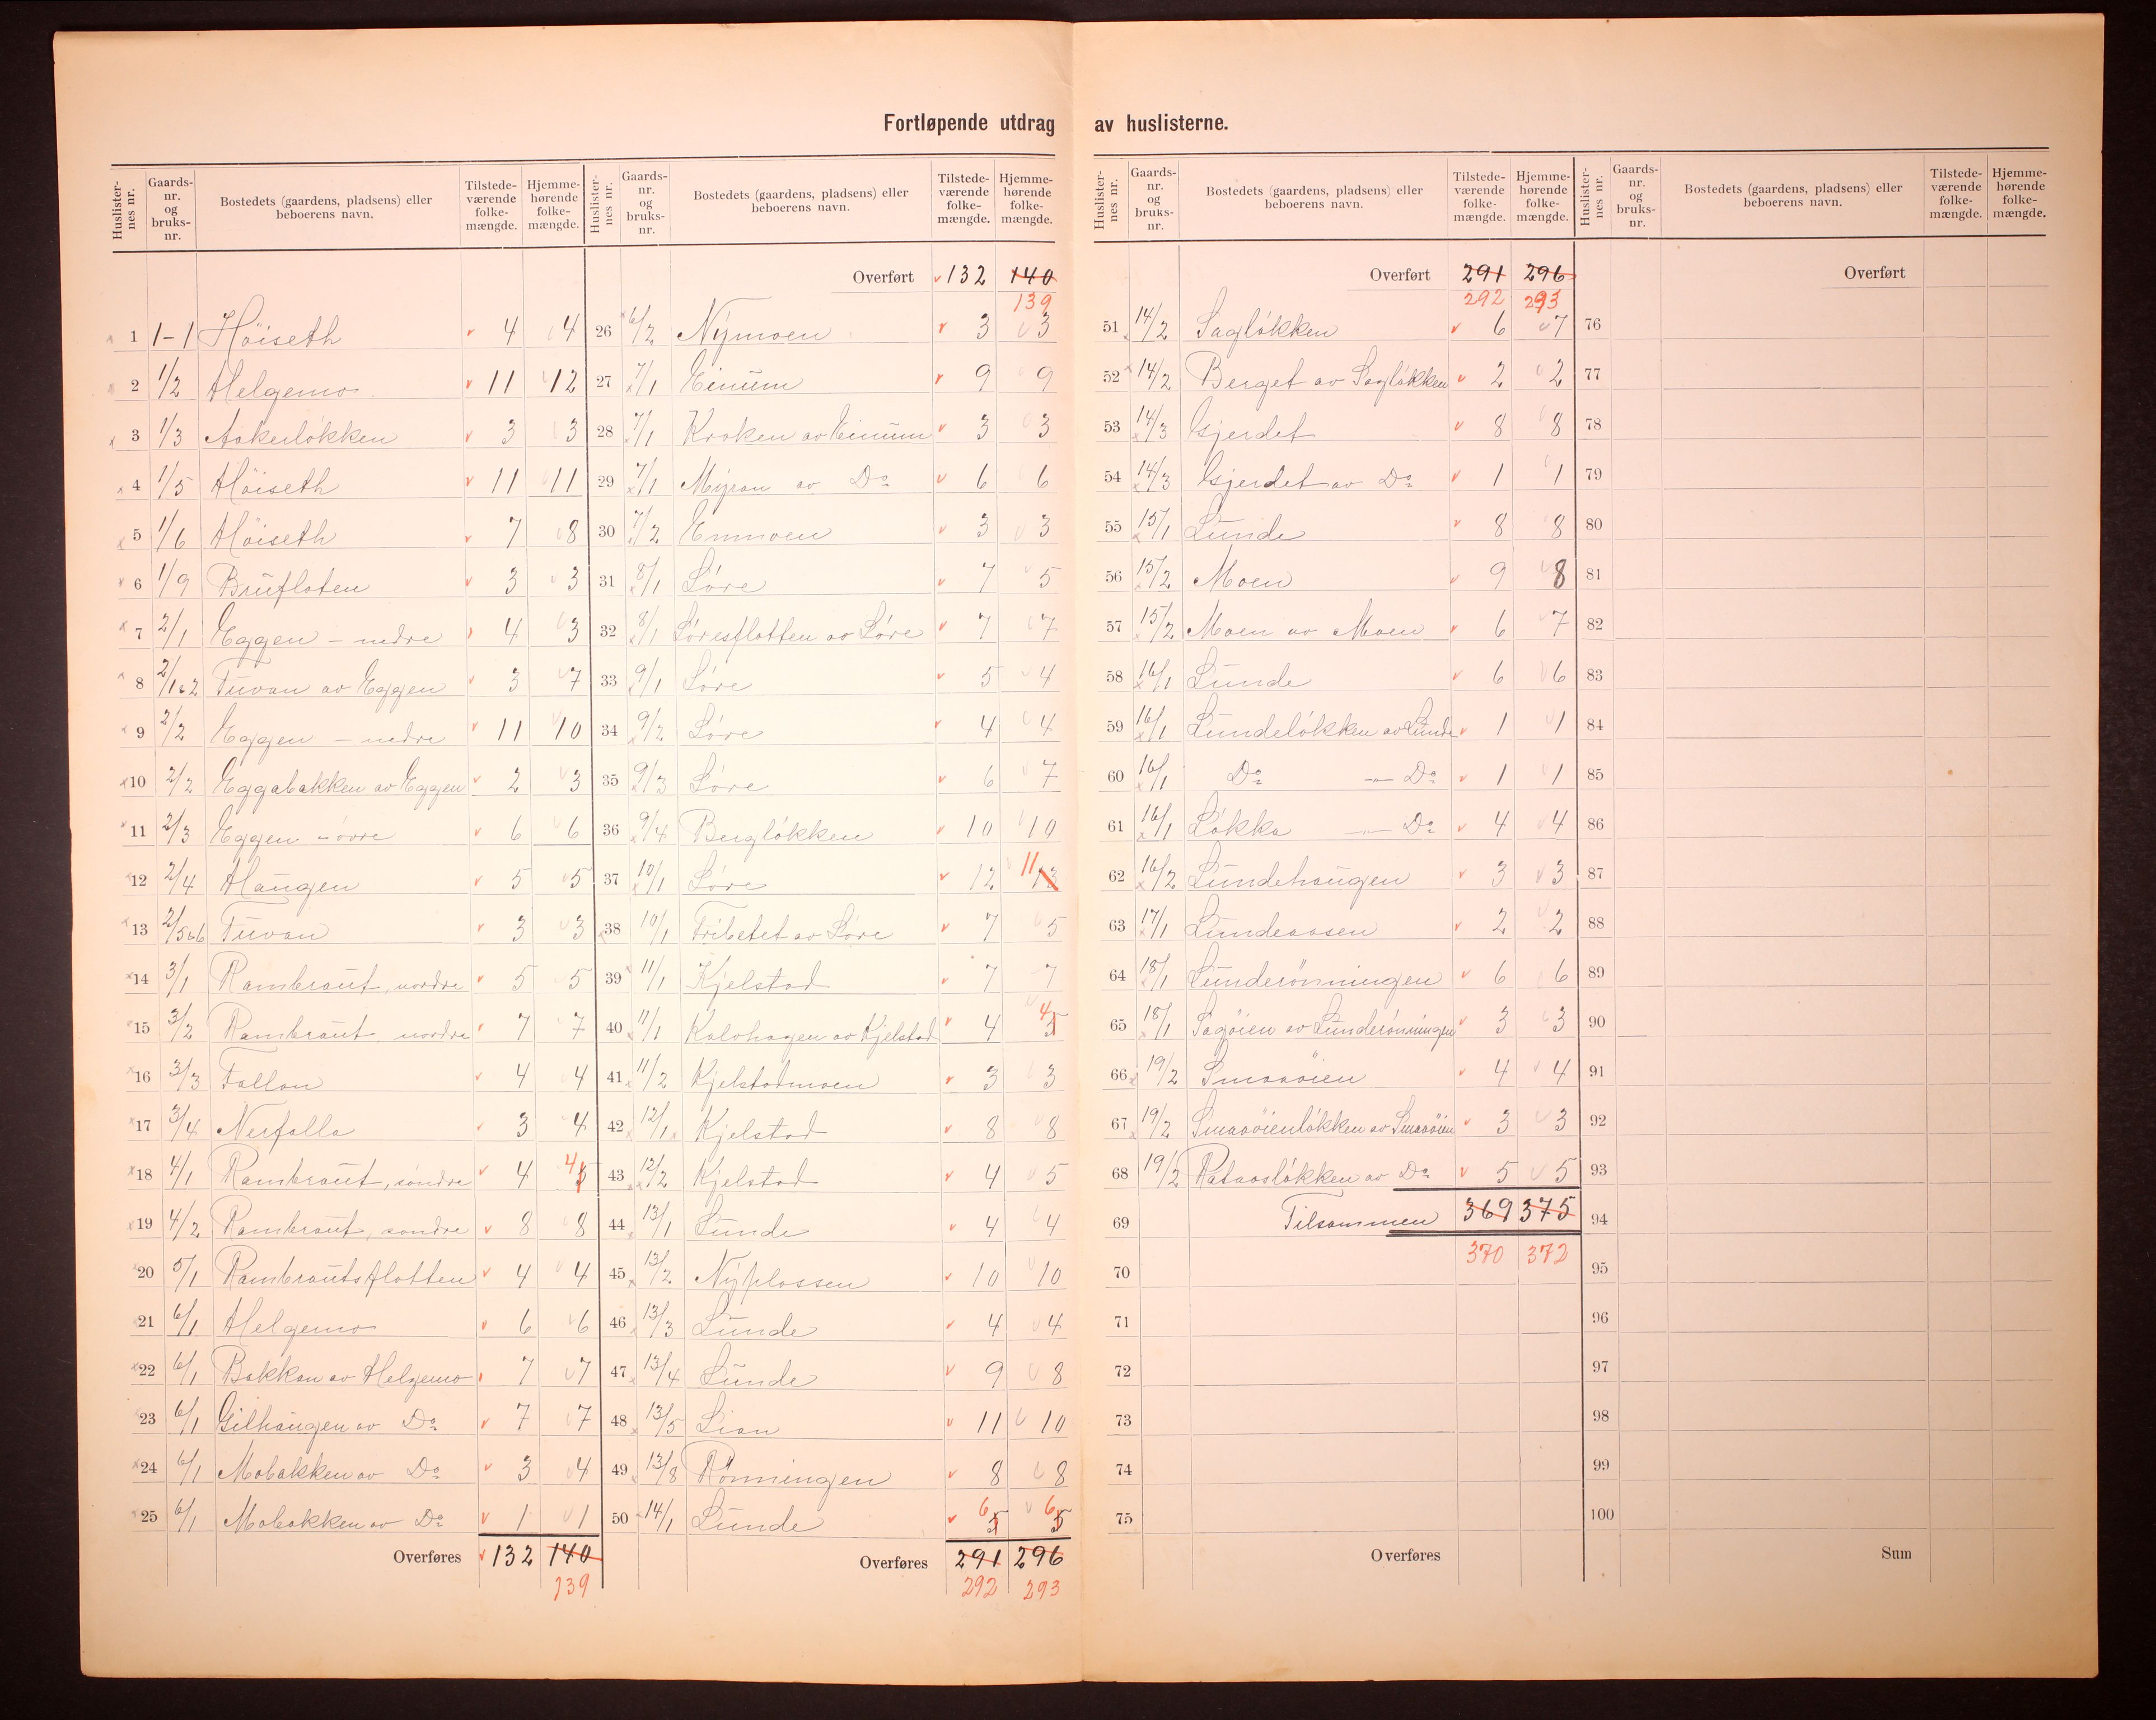 Fortløpende utdrag av huslisterne.
Huslisternes nr. Gaards-nr. og bruks-nr. Bostedets (gaardens, pladsens) eller beboerens navn. Tilstedeværende folkemængde. Hjemmehørende folkemængde.
1 1-1 Höiseth 4 4
2 1/2 Helgemo 11 12
3 1/3 Aakerløkken 3 3
4 1/5 Höiseth 11 11
5 1/6 Höiseth 7 8
6 1/9 Brufloten 3 3
7 2/1 Eggen - nedre 4 3
8 2/1&2 Tuvan av Eggen 3 7
9 2/2 Eggen - nedre 11 10
10 2/2 Eggabakken av Eggen 2 3
11 2/3 Eggen - övre 6 6
12 2/4 Haugen 5 5
13 2/5&6 Tuvan 3 3
14 3/1 Rambraut, nordre 5 5
15 3/2 Rambraut nordre 7 7
16 3/3 Fallan 4 4
17 3/4 Nerfalla 3 4
18 4/1 Rambraut, søndre 4 4 5
19 4/2 Rambraut, søndre 8 8
20 5/1 Rambrautsflatten 4 4
21 6/1 Helgemo 6 6
22 6/1 Bakkan av Helgemo 7 7
23 6/1 Gilhaugen av Do 7 7
24 6/1 Mobakken av Do 3 4
25 6/1 Mobakken av Do 1 1
Overføres 132 140
139
Huslisternes nr. Gaards-nr. og bruks-nr. Bostedets (gaardens, pladsens) eller beboerens navn. Tilstedeværende folkemængde. Hjemmehørende folkemængde.
Overført 132 140
139
26 6/2 Nymoen 3 3
27 7/1 Einum 9 9
28 7/1 Kroken av Einum 3 3
29 7/1 Myran av Do 6 6
30 7/2 Enmoen 3 3
31 8/1 Løre 7 5
32 8/1 Løresflatten av Løre 7 7
33 9/1 Løre 5 4
34 9/2 Løre 4 4
35 9/3 Løre 6 7
36 9/4 Bergløkken 10 10
37 10/1 Løre 12 11 13
38 10/1 Tribetet av Løre 7 5
39 11/1 Kjelstad 7 7
40 11/1 Kalvhagen av Kjelstad 4 4 5
41 11/2 Kjelstadmoen 3 3
42 12/1 Kjelstad 8 8
43 12/2 Kjelstad 4 5
44 13/1 Lunde 4 4
45 13/2 Nyplassen 10 10
46 13/3 Lunde 4 4
47 13/4 Lunde 9 8
48 13/5 Lian 11 10
49 13/8 Rönningen 8 8
50 14/1 Lunde 6 5 6 5
Overføres 291 296
292 293
Huslisternes nr. Gaards-nr. og bruks-nr. Bostedets (gaardens, pladsens) eller beboerens navn. Tilstedeværende folkemængde. Hjemmehørende folkemængde.
Overført 291 296
292 293
51 14/2 Sagløkken 6 7
52 14/2 Berget av Sagløkken 2 2
53 14/3 Gjerdet 8 8
54 14/3 Gjerdet av Do 1 1
55 15/1 Lunde 8 8
56 15/2 Moen 9 8
57 15/2 Moen av Moen 6 7
58 16/1 Lunde 6 6
59 16/1 Lundeløkken av Lunde 1 1
60 16/1 Do - Do 1 1
61 16/1 Løkka - Do 4 4
62 16/2 Lundehaugen 3 3
63 17/1 Lundeaasen 2 2
64 18/1 Lunderönningen 6 6
65 18/1 Sagöien av Lunderönningen 3 3
66 19/2 Smaaöien 4 4
67 19/2 Smaaöienløkken av Smaaöien 3 3
68 19/2 Rataasløkken av Do 5 5
69 Tilsammen 369 375
70 370 372
71
72
73
74
75
Overføres
Huslisternes nr. Gaards-nr. og bruks-nr. Bostedets (gaardens, pladsens) eller beboerens navn. Tilstedeværende folkemængde. Hjemmehørende folkemængde.
Overført
76
77
78
79
80
81
82
83
84
85
86
87
88
89
90
91
92
93
94
95
96
97
98
99
100
Sum